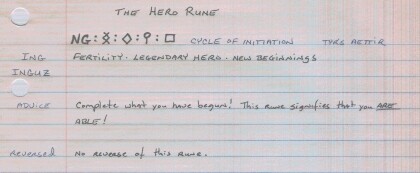 The Hero Rune
NG: ᛝ: ◇: ⚲: □ Cycle of Initiation Tyrs Aettir
Ing Fertility · Legendary Hero · New Beginnings
Inguz
Advice Complete what you have begun! This rune signifies that you ARE
ABLE!
Reversed No reverse of this rune.